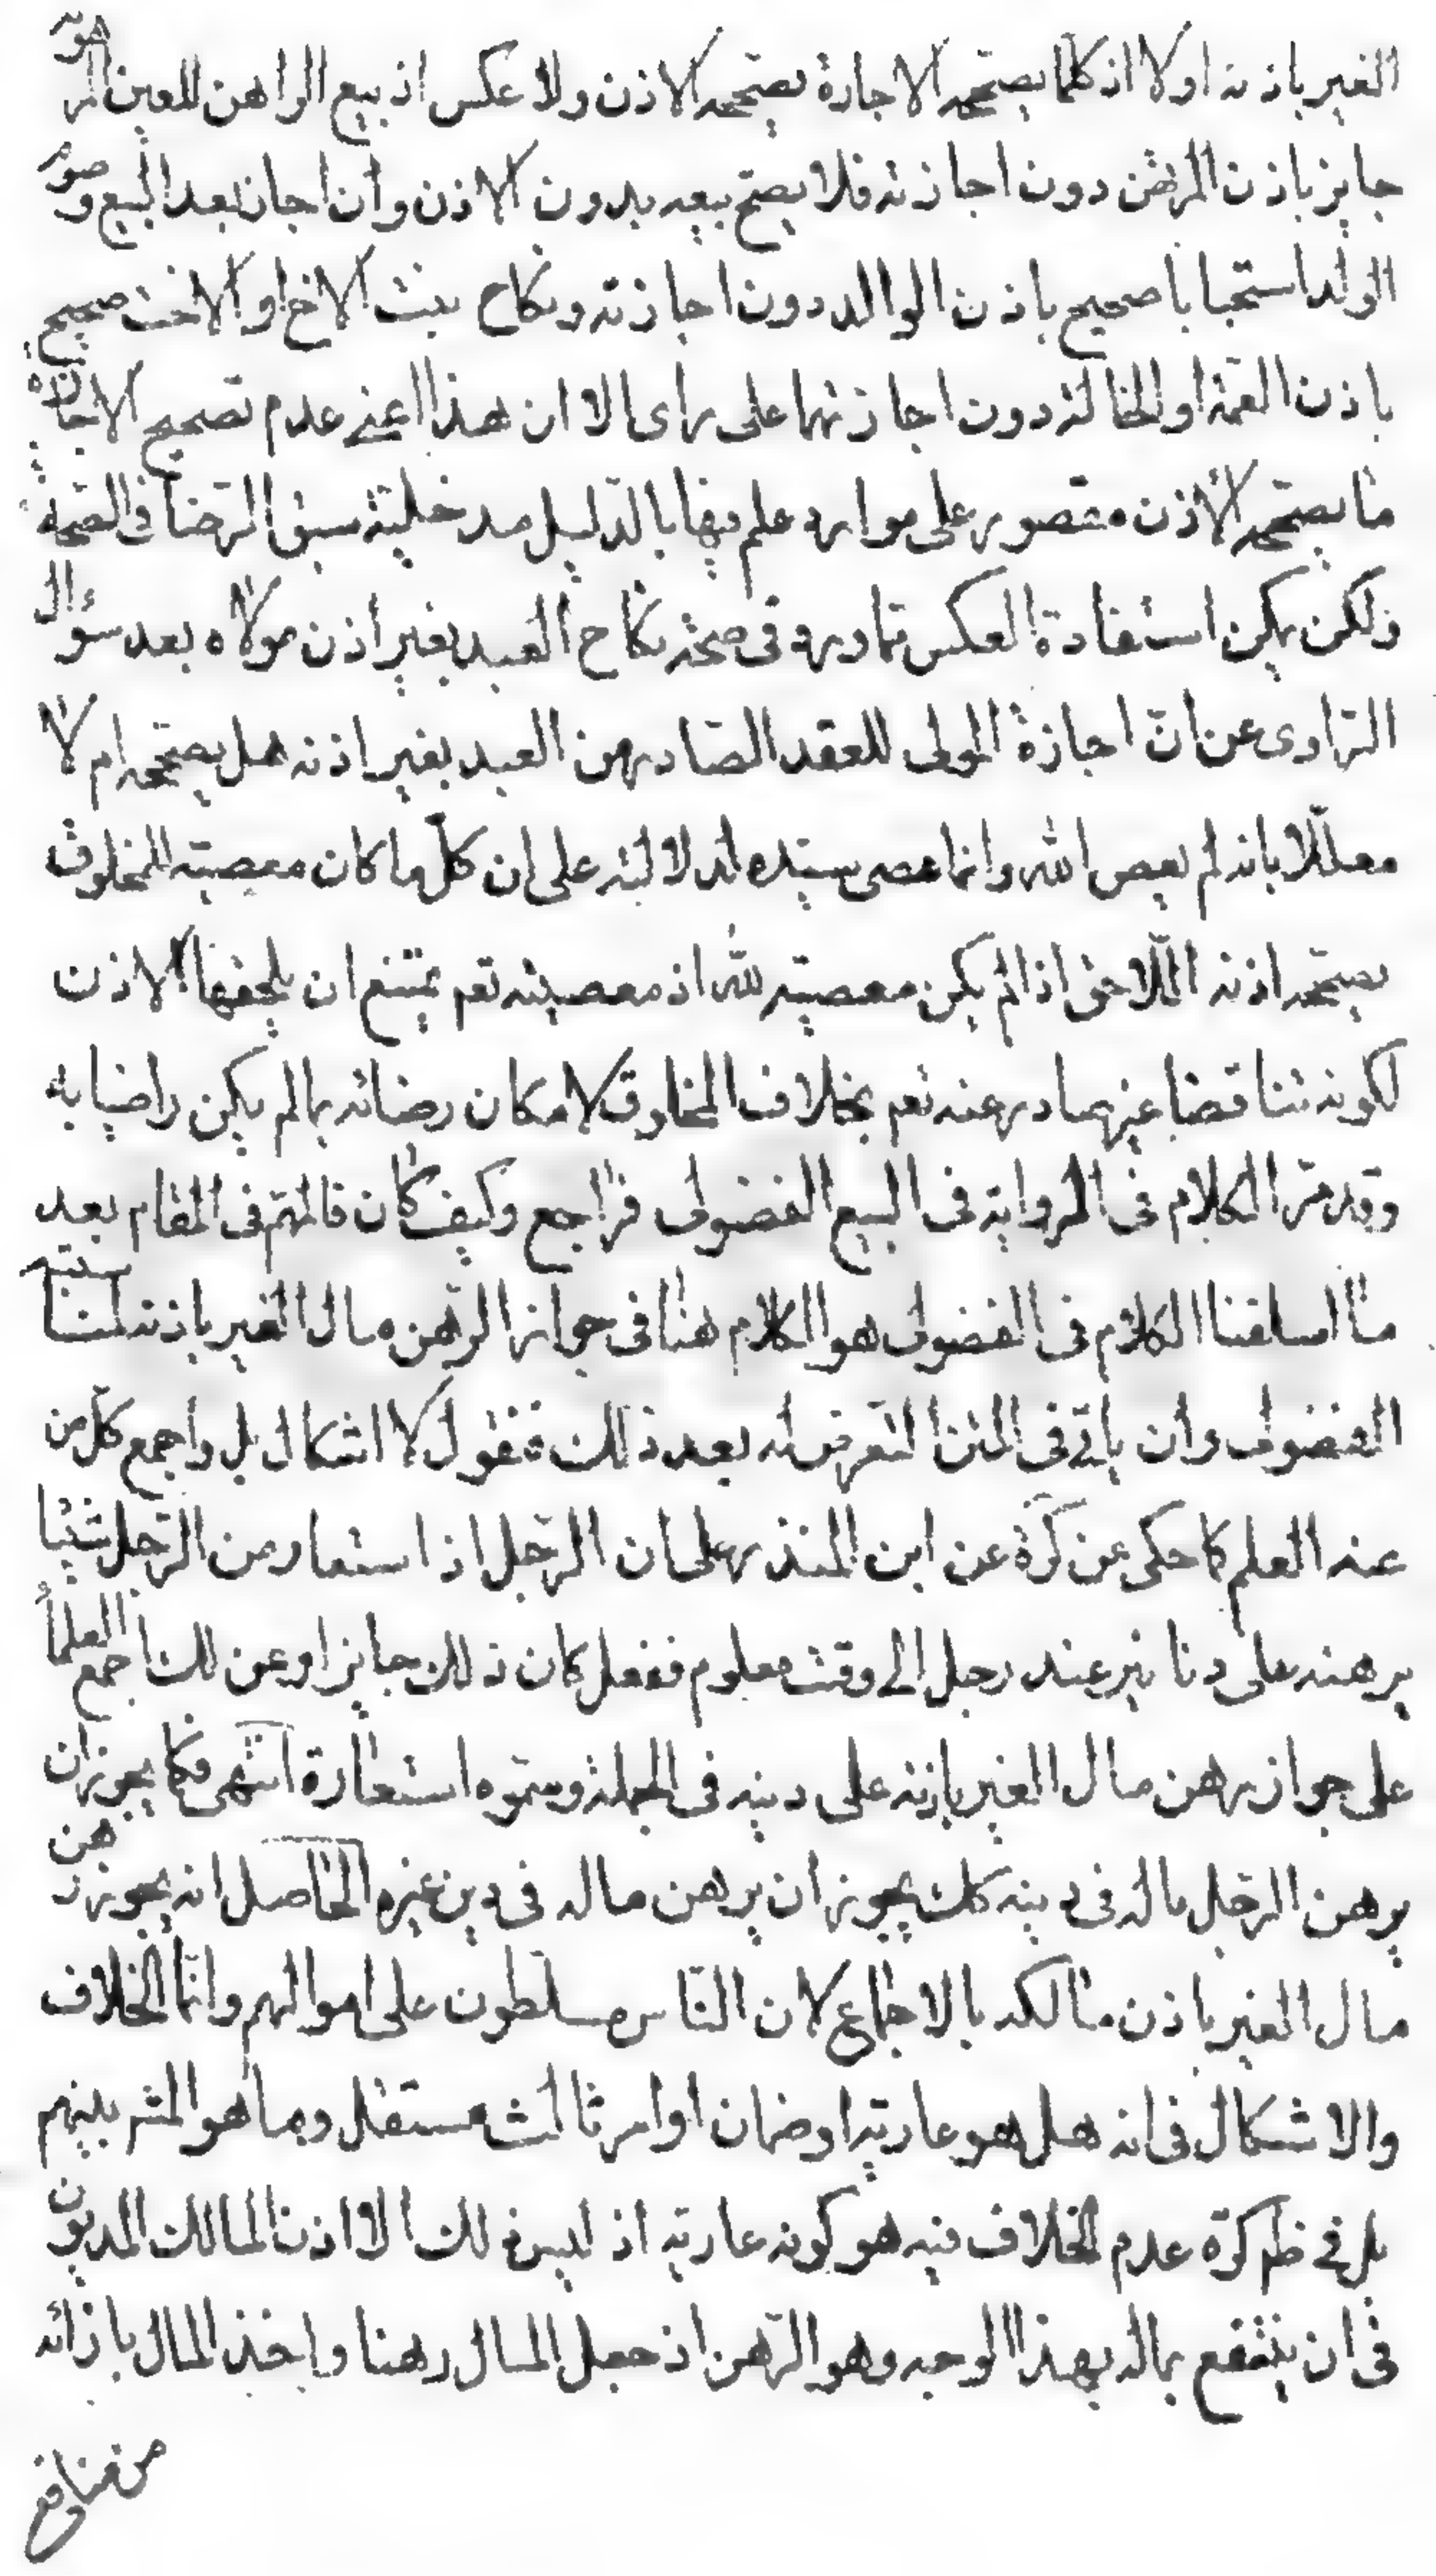 الغير باذنه اولا اذ كلما يصححه الاجازة يصححه الاذن ولا عكس اذ بيع الراهن للعين المرهونه
جايز باذن المرتهن دون اجازته فلا يصح بيعه بدون الاذن وان اجاز بعد البيع وصوم
الولد استحبابا صحيح باذن الوالد دون اجازته ونكاح بنت الاخ او الاخت صحيح
باذن العمة او الخالة دون اجازتهما على راى الا ان هذا اعنى عدم تصحيح الاجازة
ما يصححه الاذن مقصور على موارد علم فيها بالدليل مدخلية سبق الرضا فى الصحة
ولكن يمكن استفادة العكس مما ورد فى صحة نكاح العبد بغير اذن مولاه بعد سؤال
الراوى عن ان اجازة المولى للعقد الصادر من العبد بغير اذنه هل يصححه ام لا
معللا بانه لم يعص الله وانما عصى سيده لدلالته على ان كل ما كان معصية المخلوق
يصححه اذنه اللاحق اذا لم يكن معصية لله اذ معصيته تعم يمتنع ان يلحقها الاذن
لكونه تناقضا غير صادر عنه تعم بخلاف المخلوق لامكان رضائه بما لم يكن راضيا به
وقد مر الكلام فى الرواية فى البيع الفضولى فراجع وكيف كان فالمهم فى المقام بعد
ما اسلفنا الكلام فى الفضولى هو الكلام هنا فى جواز الرهن مال الغير باذنه لمناسبته
الفضولى وان ياتى فى المتن التعرض له بعد ذلك فنقول لا اشكال بل واجمع كل من
عنه العلم كما حكى عن كرة عن ابن المنذر على ان الرجل اذا استعار من الرجل شيئا
يرهنه على دنانير عند رجل الى وقت معلوم ففعل كان ذلك جايزا وعن لك اجمع العلماء
على جواز رهن مال الغير باذنه على دينه فى الجملة وسموه استعارة انتهى فكما يجوز ان
يرهن الرجل ماله فى دينه كك يجوز ان يرهن ماله فى دين غيره الحاصل انه يجوز رهن
مال الغير باذن مالكه بالاجماع لان الناس مسلطون على اموالهم وانما الخلاف
والاشكال فى انه هل هو عارية او ضمان او امر ثالث مستقل وما هو المشر بينهم
بل فى ظم كرة عدم الخلاف فيه هو كونه عارية اذ ليس ذلك الا اذن المالك المديون
فى ان ينتفع بماله بهذا الوجه وهو الرهن اذ جعل المال رهنا واخذ المال بازائه
من منافع